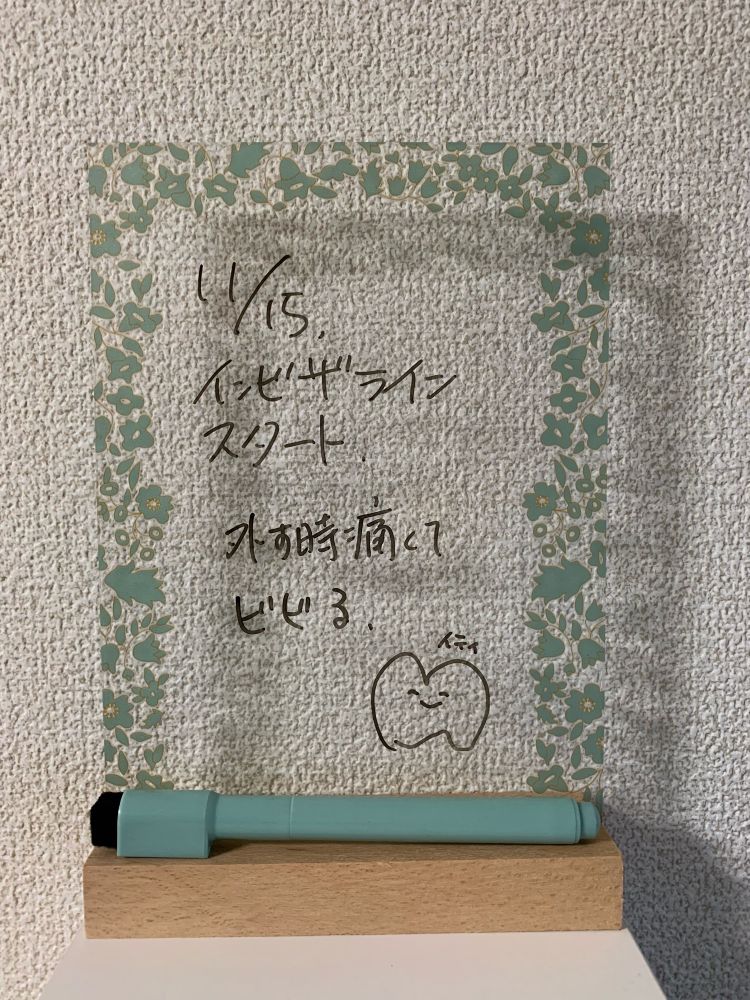 11/15.
インビザライン
スタート.
外す時痛くて
ビビる.
イティ